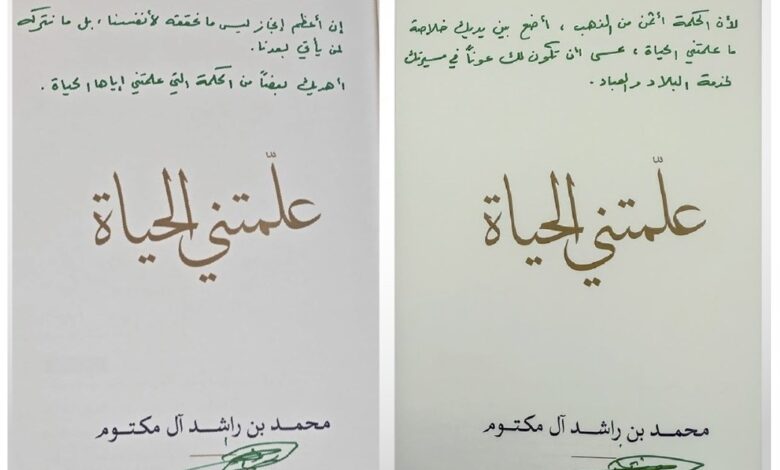 إن أعظم إنجاز ليس ما نحققه لأنفسنا، بل ما نتركه
لمن يأتي بعدنا.
أهديك بعضاً من الحكمة التي علمتني إياها الحياة.
علّمتني الحياة
محمد بن راشد آل مكتوم
لأن الحكمة أثمن من الذهب، أضع بين يديك خلاصة
ما علمتني الحياة، عسى أن تكون لك عوناً في مسيرتك
لخدمة البلاد والعباد.
علّمتني الحياة
محمد بن راشد آل مكتوم